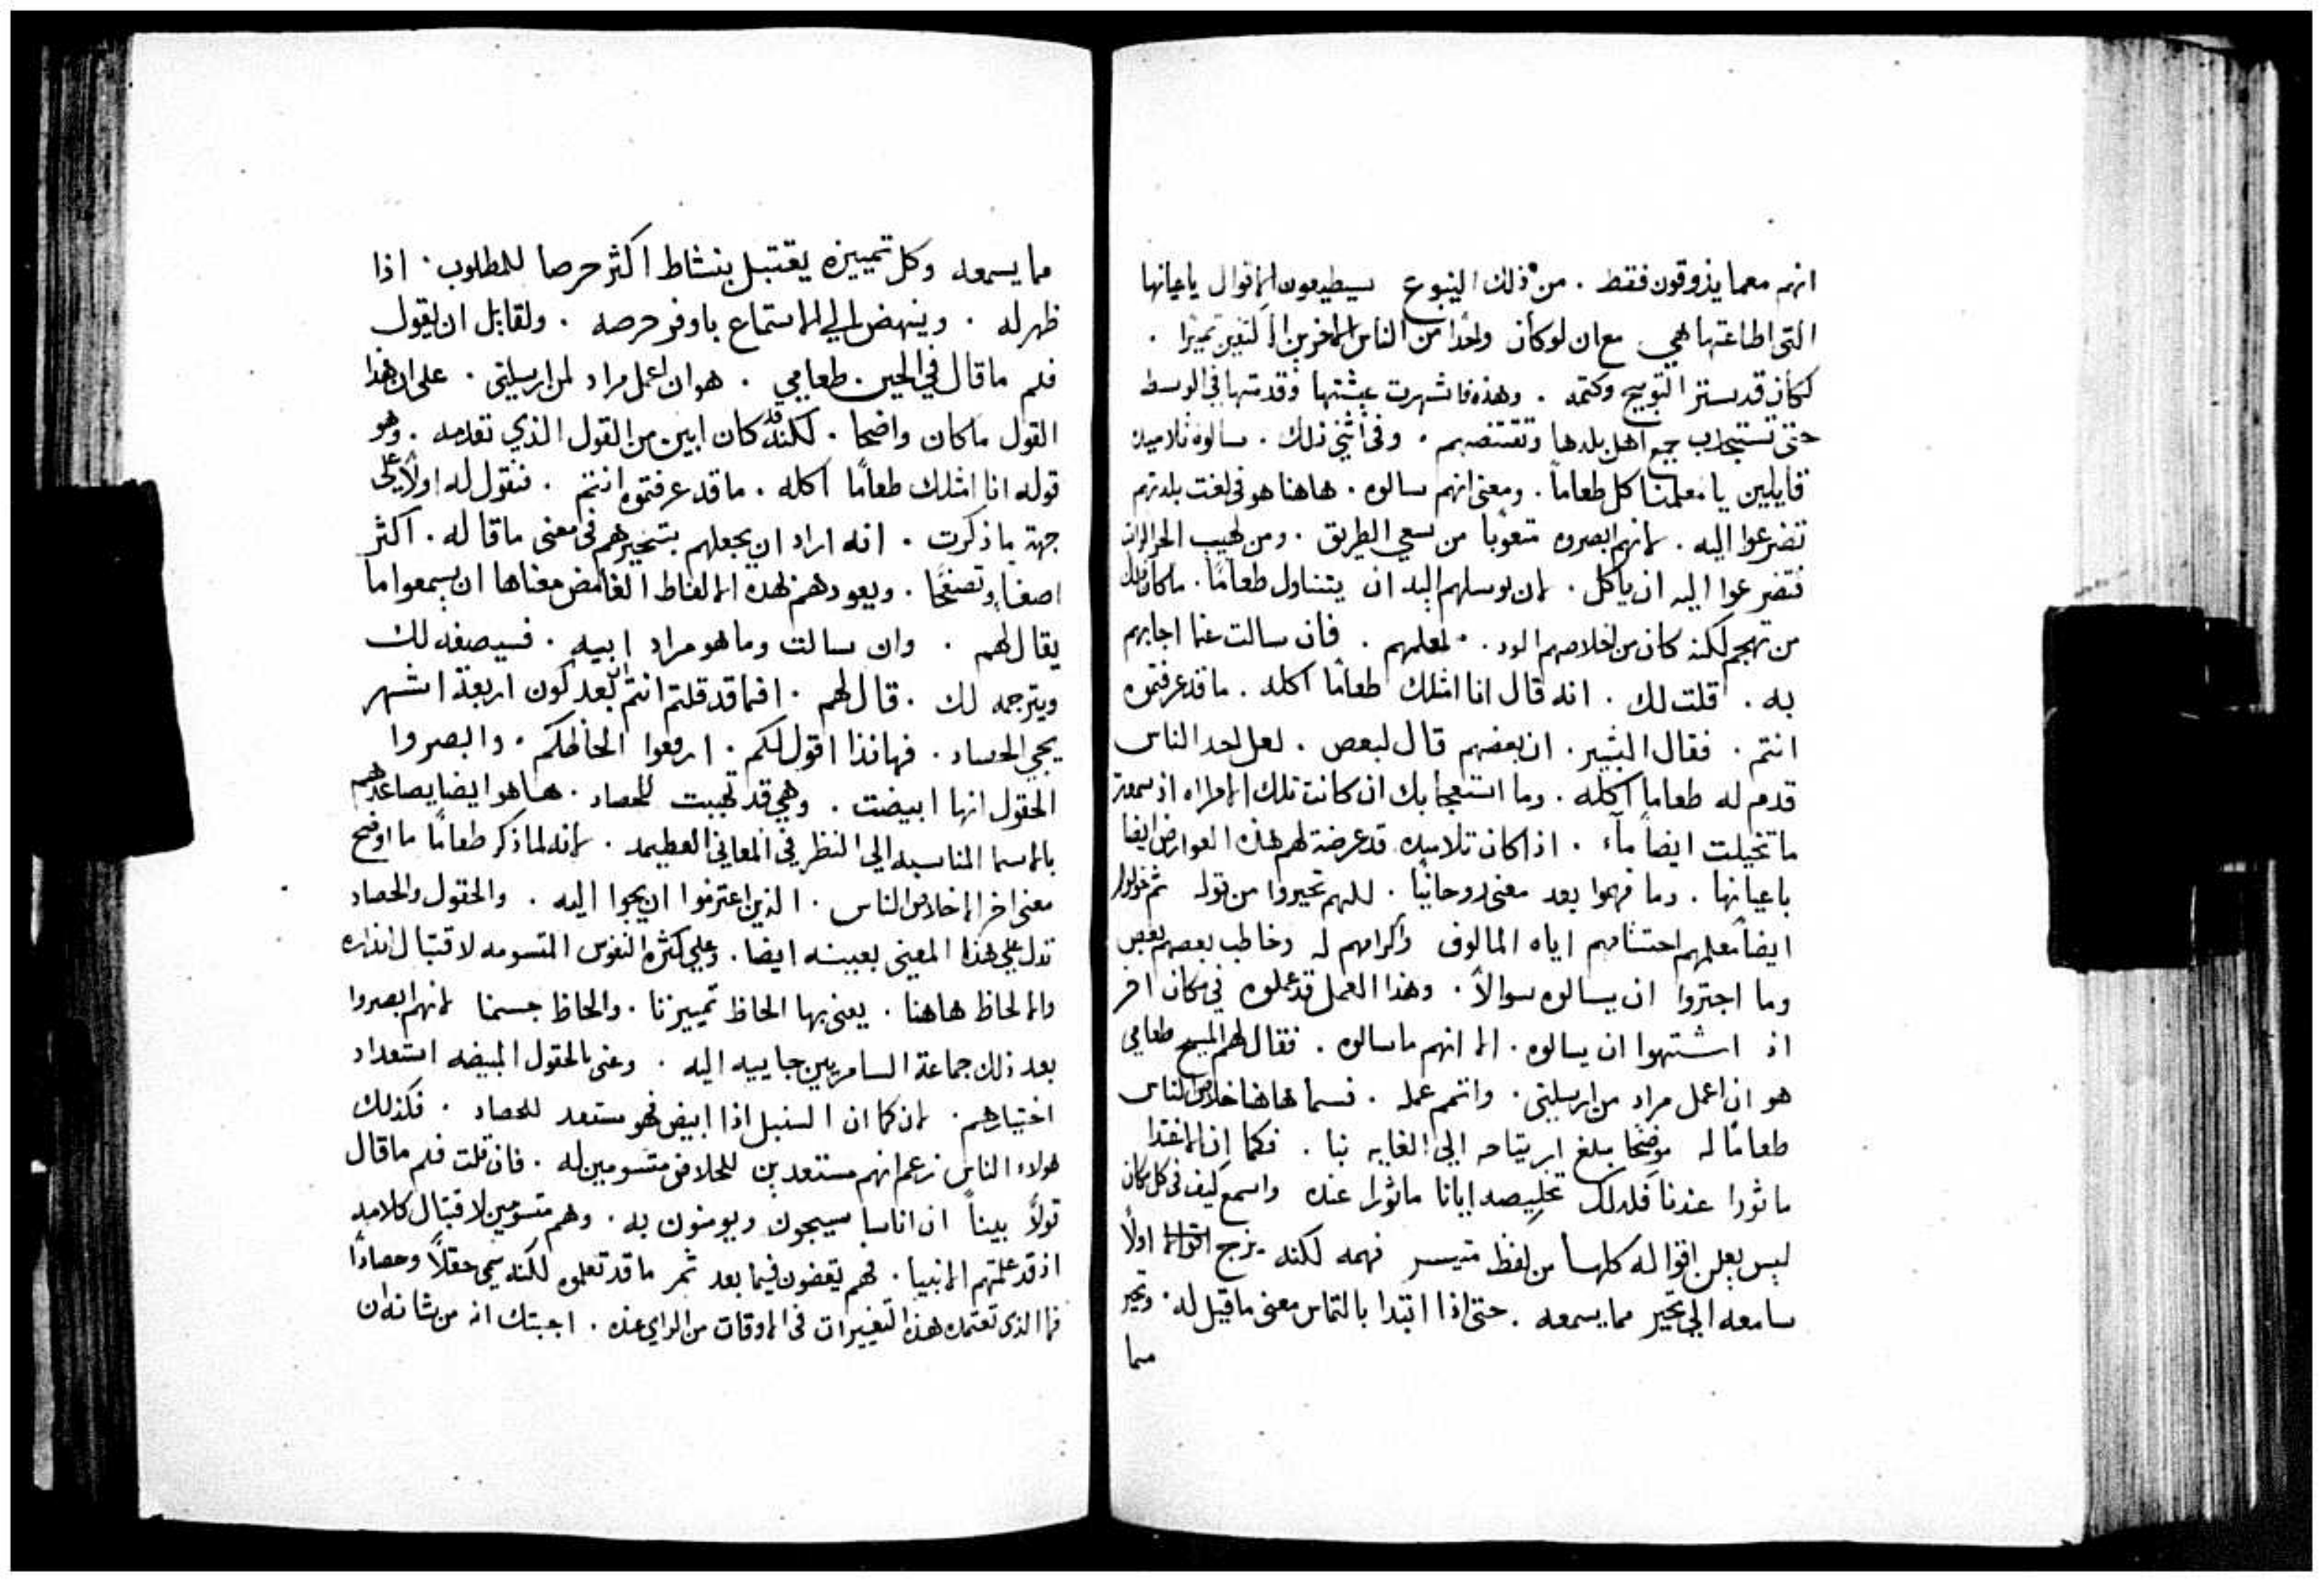 انهم معما يذوقون فقط . من ذلك الينبوع سيطيعون الاقوال باعيانها
التى اطاعتها هي مع ان لو كان واحدا من الناس الاخرين الاكثرين تميزا .
لكان قد ستر التوبيخ وكتمه . وهذه فاشهرت عيشتها وقدمتها في الوسط
حتى تستجذب جميع اهل بلدها وتقتنصهم . وفى اثني ذلك . سالوه تلاميده
قايلين يا معلمنا كل طعاماً . ومعنى انهم سالوه . هاهنا هو فى لغت بلدتهم
تضرعوا اليه . لانهم ابصروه متعوباً من سعي الطريق . ومن لهيب الحر
فتضرعوا اليه ان ياكل . لان توسلهم اليه ان يتناول طعاماً . ماكان ذلك
من تهجم لكنه كان من اخلاصهم الود . لمعلمهم . فان سالت عما اجابهم
به . قلت لك . انه قال انا امتلك طعاماً اكله . ما قد عرفتموه
انتم . فقال البشير . ان بعضهم قال لبعص . لعل احد الناس
قدم له طعاما اكله . وما استعجابك ان كانت تلك الامراه اذ سمعت
ما تخيلت ايضاً مآء . اذا كان تلاميده قد عرضة لهم هذه العوارض ايضا
باعيانها . وما فهموا بعد معنى روحانياً . للهم تحيروا من قوله ثم خولوا
ايضاً معلمهم احتشامهم اياه المالوف واكرامهم له وخاطب بعصهم بعص
وما اجتروا ان يسالوه سوالاً . وهذا العمل قد عملوه في مكان اخر
اذ اشتهوا ان يسالوه . الا انهم ما سالوه . فقال لهم المسيح طعامي
هو ان اعمل مراد من ارسلني . واتمم عمله . فسما هاهنا خلاص الناس
طعاماً له موضحا مبلغ ارتياحه الي الغايه بنا . فكما ان الاغتدا
ماثورا عندنا فلدلك تخليصه ايانا ماثورا عنده واسمع كيف فى كل مكان
ليس يعلن اقواله كلها من لفظ متيسر فهمه لكنه يزج اولاً
سامعه الي تحير مما يسمعه . حتى اذا ابتدا بالتماس معنى ما قيل له . وتحير
مما
مما يسمعه وكل تمييزه يقتبل بنشاط اكثر حرصا للمطلوب . اذا
ظهر له . وينهض الي الاستماع باوفر حرصه . ولقايل ان يقول
فلم ما قال في الحين . طعامي . هو ان اعمل مراد لمن ارسلني . على ان هذا
القول ماكان واضحا . لكنه قد كان ابين من القول الذي تقدمه . وهو
قوله انا امتلك طعاماً اكله . ما قد عرفتموه انتم . فنقول له اولاً على
جهة ما ذكرت . انه اراد ان يجعلهم بتحيرهم فى معنى ما قاله . اكثر
اصغاءً وتصفحا . ويعودهم بهده الالفاظ الغامض معناها ان يسمعوا ما
يقال لهم . وان سالت وما هو مراد ابيه . فسيصفه لك
ويترجمه لك . قال لهم . افما قد قلتم انتم ان بعد كون اربعة اشهر
يجي الحصاد . فهانذا اقول لكم . ارفعوا الحاظكم . وابصروا
الحقول انها ابيضت . وهي قد تهيبت للحصاد . هاهو ايضا يصاعدهم
بالاسما المناسبه الي النظر في المعاني العظيمه . لانه لما ذكر طعاماً ما اوضح
معنى اخر الا خلاص الناس . الذين اعتزموا ان يجوا اليه . والحقول والحصاد
تدل على هذا المعنى بعينه ايضا . وعلي كثرة النفوس المتسومه لاقتبال انذاره
والالحاظ هاهنا . يعنى بها الحاظ تمييزنا . والحاظ جسمنا لانهم ابصروا
بعد ذلك جماعة السامريين جاييه اليه . وعنى بالحقول المبيضه استعداد
اختيارهم . لان كما ان السنبل اذا ابيض فهو مستعد للحصاد . فكذلك
هولاء الناس زعم انهم مستعدين للخلاص متسومين له . فان قلت فلم ما قال
قولاً بيناً ان اناسا سيجون ويومنون به . وهم متسومين لاقتبال كلامه
اذ قد علمتهم الانبيا . فهم يتعضون فيما بعد ثمر ما قد تعلموه لكنه سمي حقلاً وحصاداً
فما الذى تعتمده هذه التغييرات فى الاوقات من الراي عنده . اجبتك انه من شانه ان